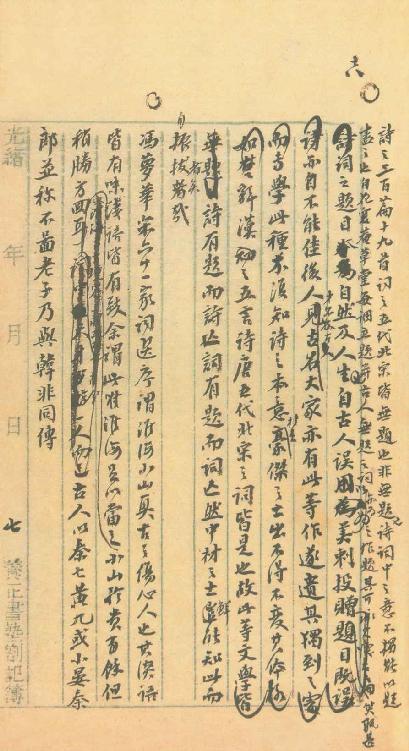 詩之三百篇十九首詞之五代北宋皆無題也非無題也詩詞中之意不能以題
盡之也自花菴草堂每調立題并古人無題之詞亦為之作題其可笑孰甚
詩詞之題目本為自然及人生自古人誤用為美刺投贈題目既誤
詩亦自不能佳後人見古名大家亦有此等作遂遺其獨到之處
而專學此種不復知詩之本意豪傑之士出不得不變其體格
如楚辭漢之五言詩唐五代北宋之詞皆是也故此等文學皆
無題詩有題而詩亡詞有題而詞亡然中材之士鮮能知此而
自振拔者矣
馮夢華宋六十一家詞選序謂淮海小山真古之傷心人也其淡語
皆有味淺語皆有致余謂此唯淮海足以當之小山矜貴有餘但
稍勝方回耳古人以秦七黃九或小晏秦
郎並稱不圖老子乃與韓非同傳
光緒 年 月 日 七 養正書塾劄記簿